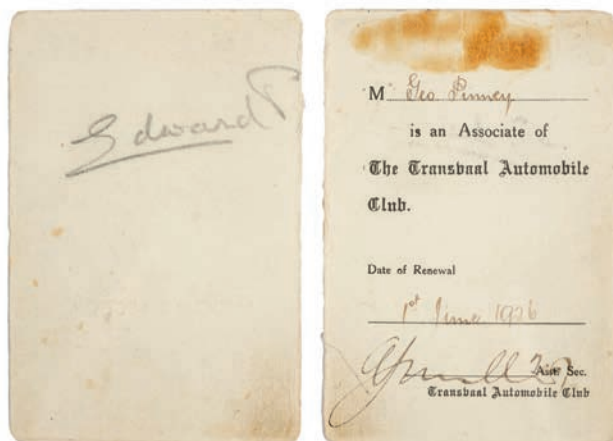 Edward P
M Geo Pinney
is an Associate of
The Transvaal Automobile
Club.
Date of Renewal
1st June 1926
Asst. Sec.
Transvaal Automobile Club